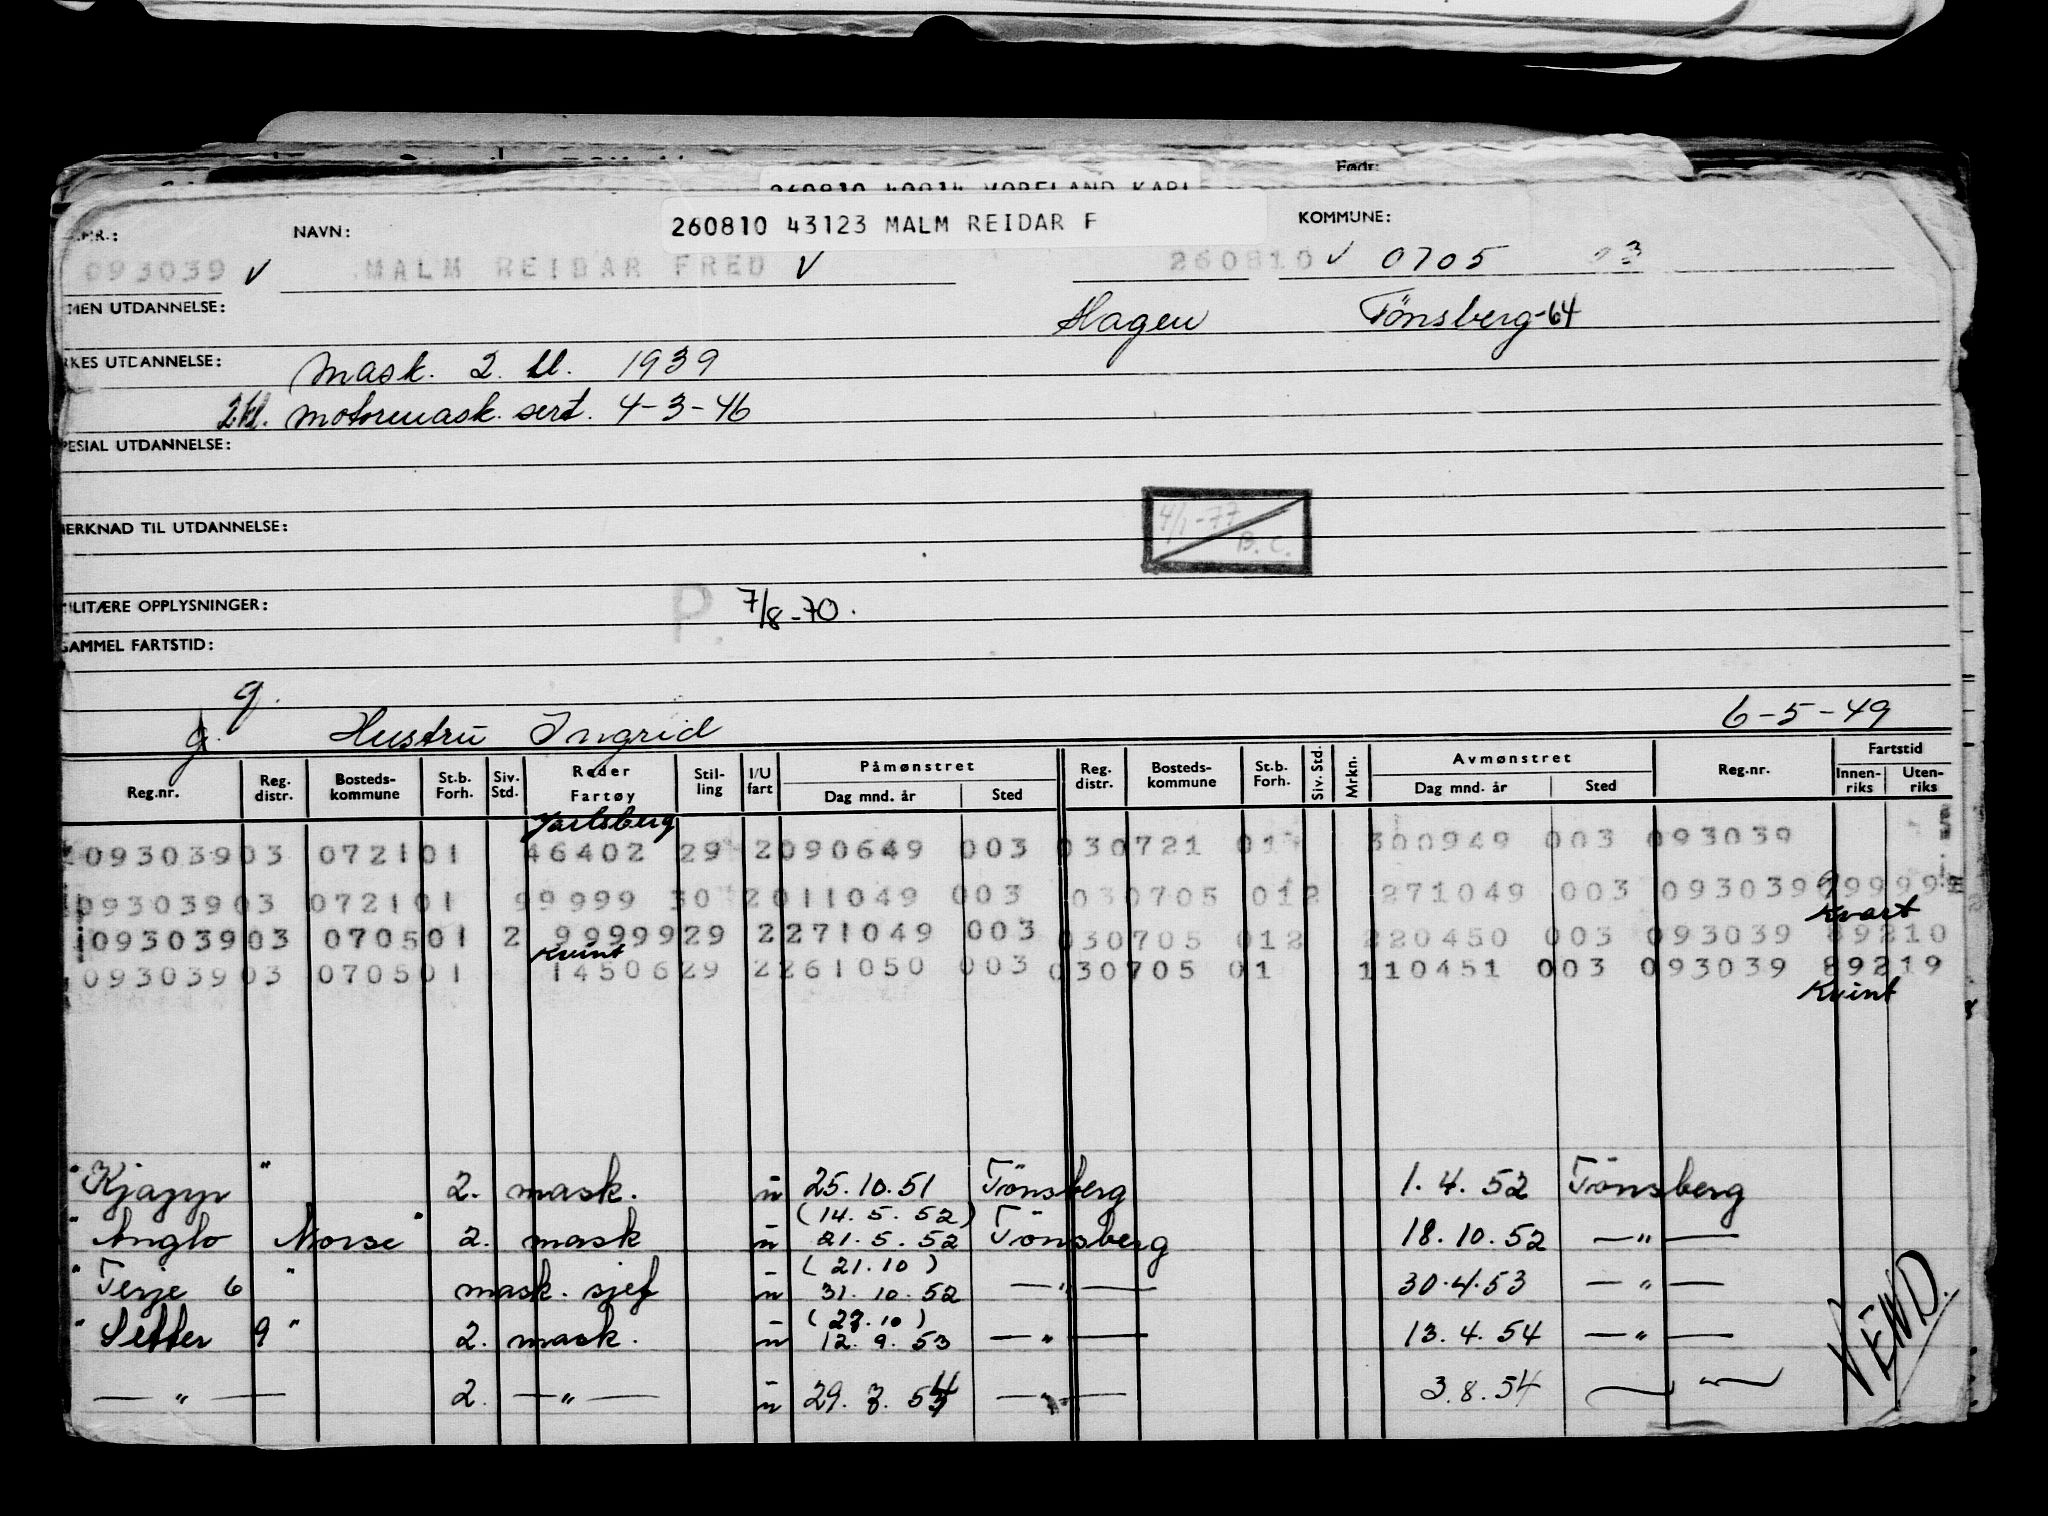 Født:
260810 43123 MALM REIDAR F
NAVN: KOMMUNE:
093039 V MALM REIDAR FRED V 260810 V 0705 03
MEN UTDANNELSE: Slagen Tönsberg-64
RKES UTDANNELSE: Mask. 2. kl. 1939
2.kl. motormask. sert. 4-3-46
PESIAL UTDANNELSE:
MERKNAD TIL UTDANNELSE: 4/1-77 B.C.
MILITÆRE OPPLYSNINGER: P. 7/8-70.
GAMMEL FARTSTID:
g.
g. Hustru Ingrid 6-5-49
Reg.nr. Reg. distr. Bosteds-kommune St.b. Forh. Siv. Std. Reder Fartøy Stil-ling I/U fart Påmønstret Dag mnd. år Sted Reg. distr. Bosteds-kommune St.b. Forh. Siv. Std. Mrkn. Avmønstret Dag mnd. år Sted Reg.nr. Fartstid Innen-riks Uten-riks
Jarlsberg
093039 03 0721 01 46402 29 2 090649 003 03 0721 01 300949 003 093039
093039 03 0721 01 99999 30 2 011049 003 03 0705 01 2 271049 003 093039 99999
Kvart
093039 03 0705 01 2 99999 29 2 271049 003 03 0705 01 2 220450 003 093039 89210
Kvint
093039 03 0705 01 14506 29 2 261050 003 03 0705 01 110451 003 093039 89219
Kvint
" Kjapp " 2. mask. u 25.10.51 Tönsberg 1.4.52 Tönsberg
(14.5.52)
" Anglo Norse " 2. mask u 21.5.52 Tönsberg 18.10.52 —"—
(21.10)
" Terje 6 " mask. sjef u 31.10.52 —"— 30.4.53 —"—
(27.10)
" Setter 9 " 2. mask. u 12.9.53 —"— 13.4.54 —"—
—"— 2. —"— u 29.7.54 —"— 3.8.54 —"—
VEND.